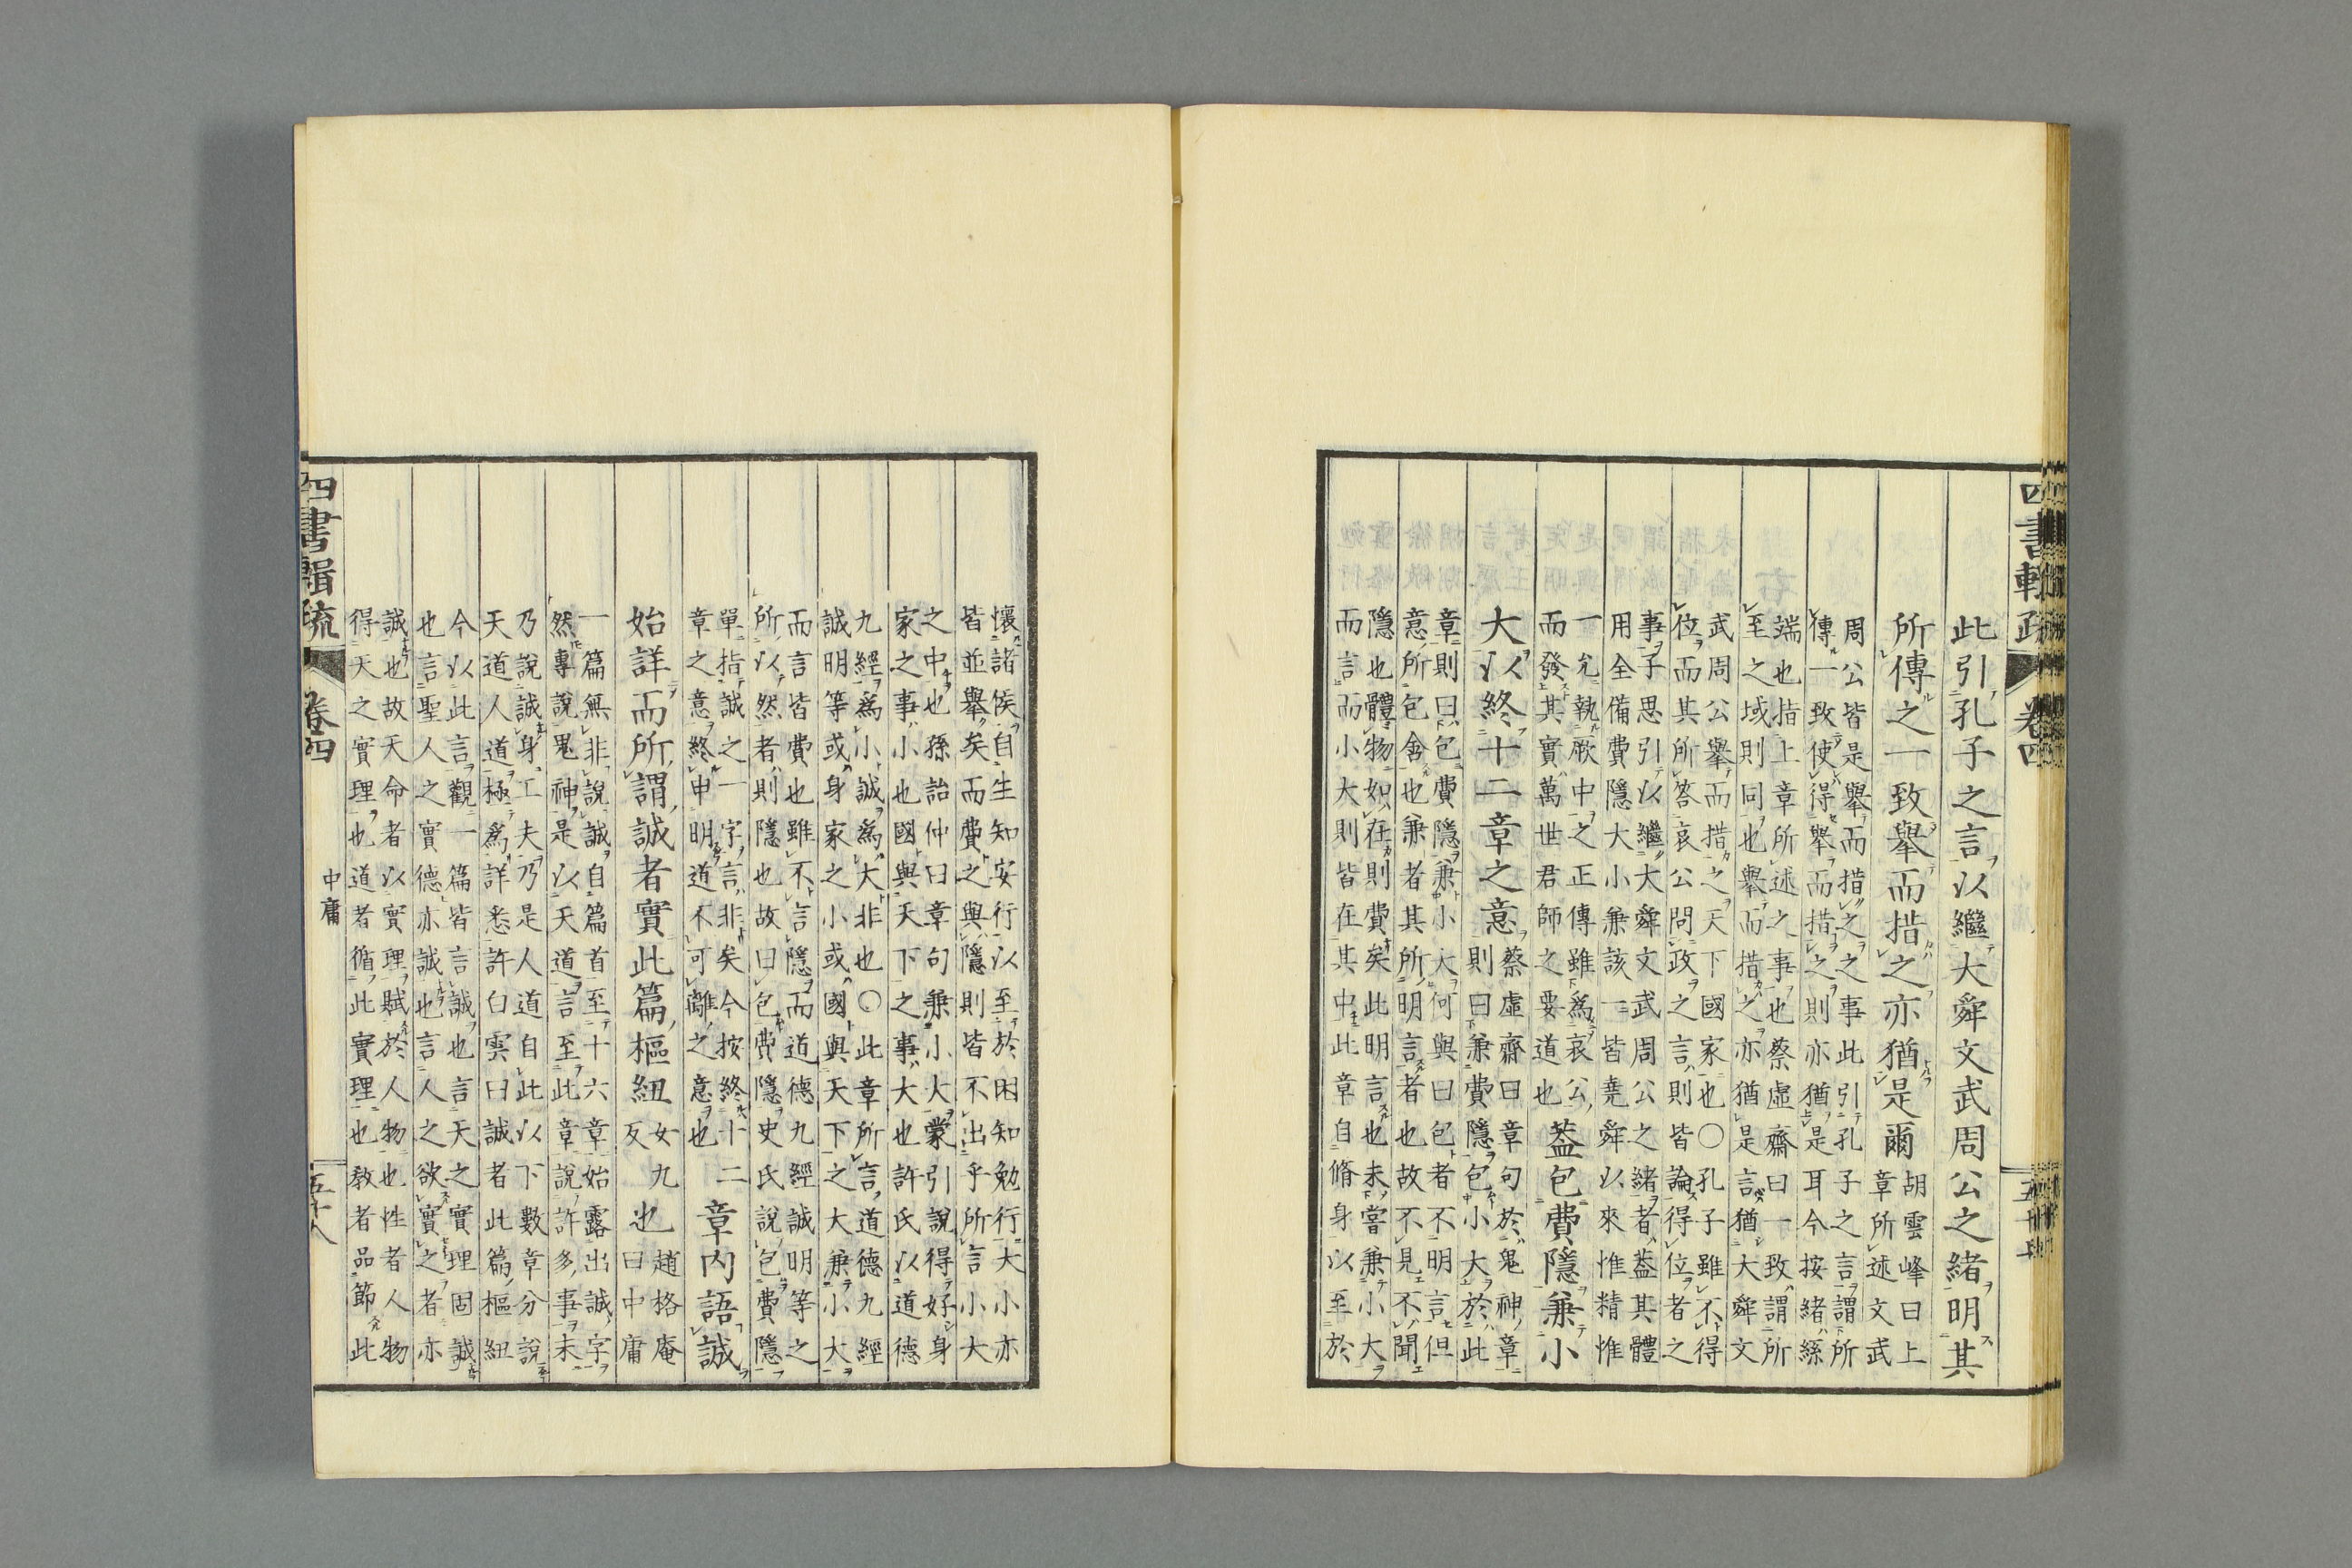 四書輯疏
卷四
此引孔子之言以繼大舜文武周公之緒明其
所傳之一致舉而措之亦猶是爾
胡雲峰曰上
章所述文武
周公皆是舉而措之之事此引孔子之言謂所
傳一致使得舉而措之則亦猶是耳今按緒絲
端也指上章所述之事也蔡虛齋曰一致謂所
至之域則同也舉而措之亦猶是言猶大舜文
武周公舉而措之天下國家也〇孔子雖不得
位而其所答哀公問政之言則皆論得位者之
事子思引以繼大舜文武周公之緒者蓋其體
用全備費隱大小兼該一皆堯舜以來惟精惟
一允執厥中之正傳雖爲哀公
而發其實萬世君師之要道也
蓋包費隱兼小
大以終十二章之意
蔡虛齋曰章句於鬼神章
則曰兼費隱包小大於此
章則曰包費隱兼小大何與曰包者不明言但
意所包含也兼者其所明言者也故不見不聞
隱也體物如在則費矣此明言也未嘗兼小大
而言而小大則皆在其中此章自脩身以至於
懷諸侯自生知安行以至於困知勉行大小亦
皆並舉矣而費之與隱則皆不出乎所言小大
之中也孫詒仲曰章句兼小大蒙引說得好身
家之事小也國與天下之事大也許氏以道德
九經爲小誠爲大非也〇此章所言道德九經
誠明等或身家之小或國與天下之大兼小大
而言皆費也雖不言隱而道德九經誠明等之
所以然者則隱也故曰包費隱史氏說包費隱
單指誠之一字言非矣今按終十二
章之意終申明道不可離之意也
章內語誠
始詳而所謂誠者實此篇樞紐
女九
反
也
趙格庵
曰中庸
一篇無非說誠自篇首至十六章始露出誠字
然專說鬼神是以天道言至此章說許多事未
乃說誠身工夫乃是人道自此以下數章分說
天道人道極爲詳悉許白雲曰誠者此篇樞紐
今以此言觀一篇皆言誠也言天之實理固誠
也言聖人之實德亦誠也言人之欲實之者亦
誠也故天命者以實理賦於人物也性者人物
得天之實理也道者循此實理也教者品節此
四書輯疏
卷四
中庸
五十八